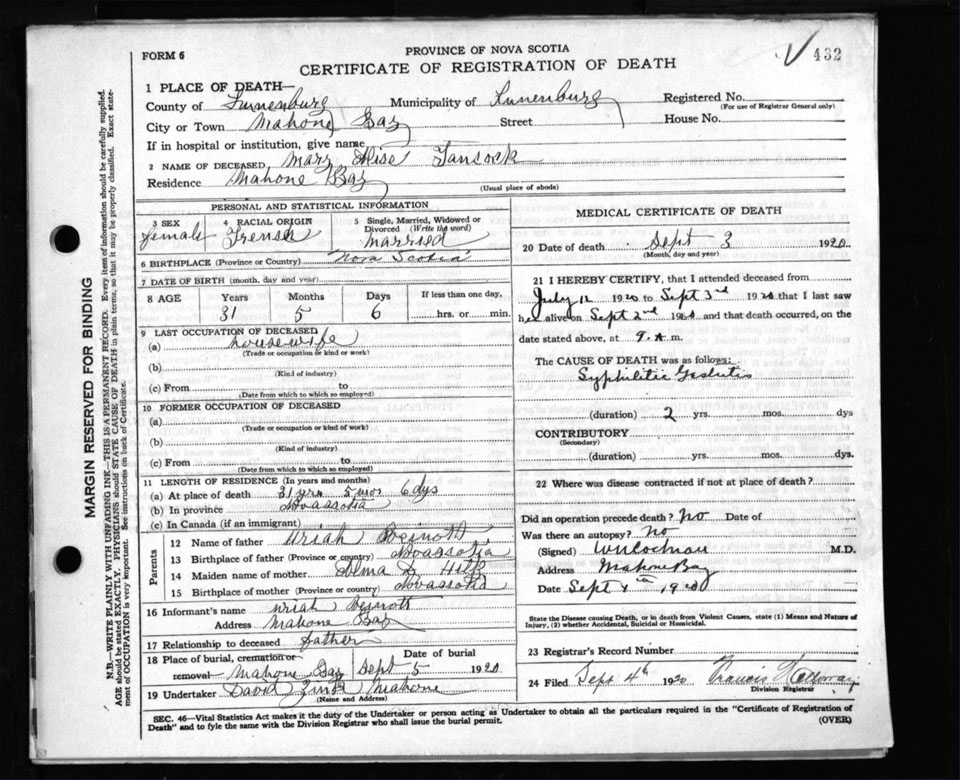 432
FORM 6
PROVINCE OF NOVA SCOTIA
CERTIFICATE OF REGISTRATION OF DEATH
1 PLACE OF DEATH—
County of Lunenburg Municipality of Lunenburg Registered No.
(For use of Registrar General only)
City or Town Mahone Bay Street House No.
If in hospital or institution, give name
2 NAME OF DECEASED, Mary Tanscock
Residence Mahone Bay
(Usual place of abode)
PERSONAL AND STATISTICAL INFORMATION
3 SEX female
4 RACIAL ORIGIN French
5 Single, Married, Widowed or Divorced (Write the word) Married
6 BIRTHPLACE (Province or Country) Nova Scotia
7 DATE OF BIRTH (month, day and year)
8 AGE Years Months Days If less than one day,
31 5 6 hrs. or min.
9 LAST OCCUPATION OF DECEASED
(a) housewife
(Trade or occupation or kind or work)
(b)
(Kind of industry)
(c) From to
(Date from which to so employed)
10 FORMER OCCUPATION OF DECEASED
(a)
(Trade or occupation or kind of work)
(b)
(Kind of industry)
(c) From to
(Date from which to so employed)
11 LENGTH OF RESIDENCE (In years and months)
(a) At place of death 31 yrs 5 mos 6 dys
(b) In province Novascotia
(c) In Canada (if an immigrant)
Parents
12 Name of father Uriah
13 Birthplace of father (Province or country) Novascotia
14 Maiden name of mother
15 Birthplace of mother (Province or country) Novascotia
16 Informant's name Uriah
Address Mahone Bay
17 Relationship to deceased father
18 Place of burial, cremation or removal Mahone Bay Date of burial Sept 5 1920
19 Undertaker David Zink Mahone
(Name and Address)
MEDICAL CERTIFICATE OF DEATH
20 Date of death Sept 3 1920
(Month, day and year)
21 I HEREBY CERTIFY, that I attended deceased from
July 12 1920 to Sept 3rd 1920 that I last saw
her alive on Sept 2nd 1920 and that death occurred, on
date stated above, at 9 A m.
The CAUSE OF DEATH was as follows:
Syphilitic
(duration) 2 yrs. mos. dys
CONTRIBUTORY
(Secondary)
(duration) yrs. mos. dys.
22 Where was disease contracted if not at place of death?
Did an operation precede death? No Date of
Was there an autopsy? No
(Signed) M.D.
Address Mahone Bay
Date Sept 4th 1920
State the Disease causing Death, or in death from Violent Causes, state (1) Means and Nature of Injury, (2) whether Accidental, Suicidal or Homicidal.
23 Registrar's Record Number
24 Filed Sept 4th 1920 Francis
Division Registrar
SEC. 46—Vital Statistics Act makes it the duty of the Undertaker or person acting as Undertaker to obtain all the particulars required in the "Certificate of Registration of
Death" and to fyle the same with the Division Registrar who shall issue the burial permit.
(OVER)
MARGIN RESERVED FOR BINDING
N.B.—WRITE PLAINLY WITH UNFADING INK—THIS IS A PERMANENT RECORD. Every item of information should be carefully supplied.
AGE should be stated EXACTLY. PHYSICIANS should STATE CAUSE OF DEATH in plain terms, so that it may be properly classified. Exact statement of OCCUPATION is very important. See instructions on back of Certificate.